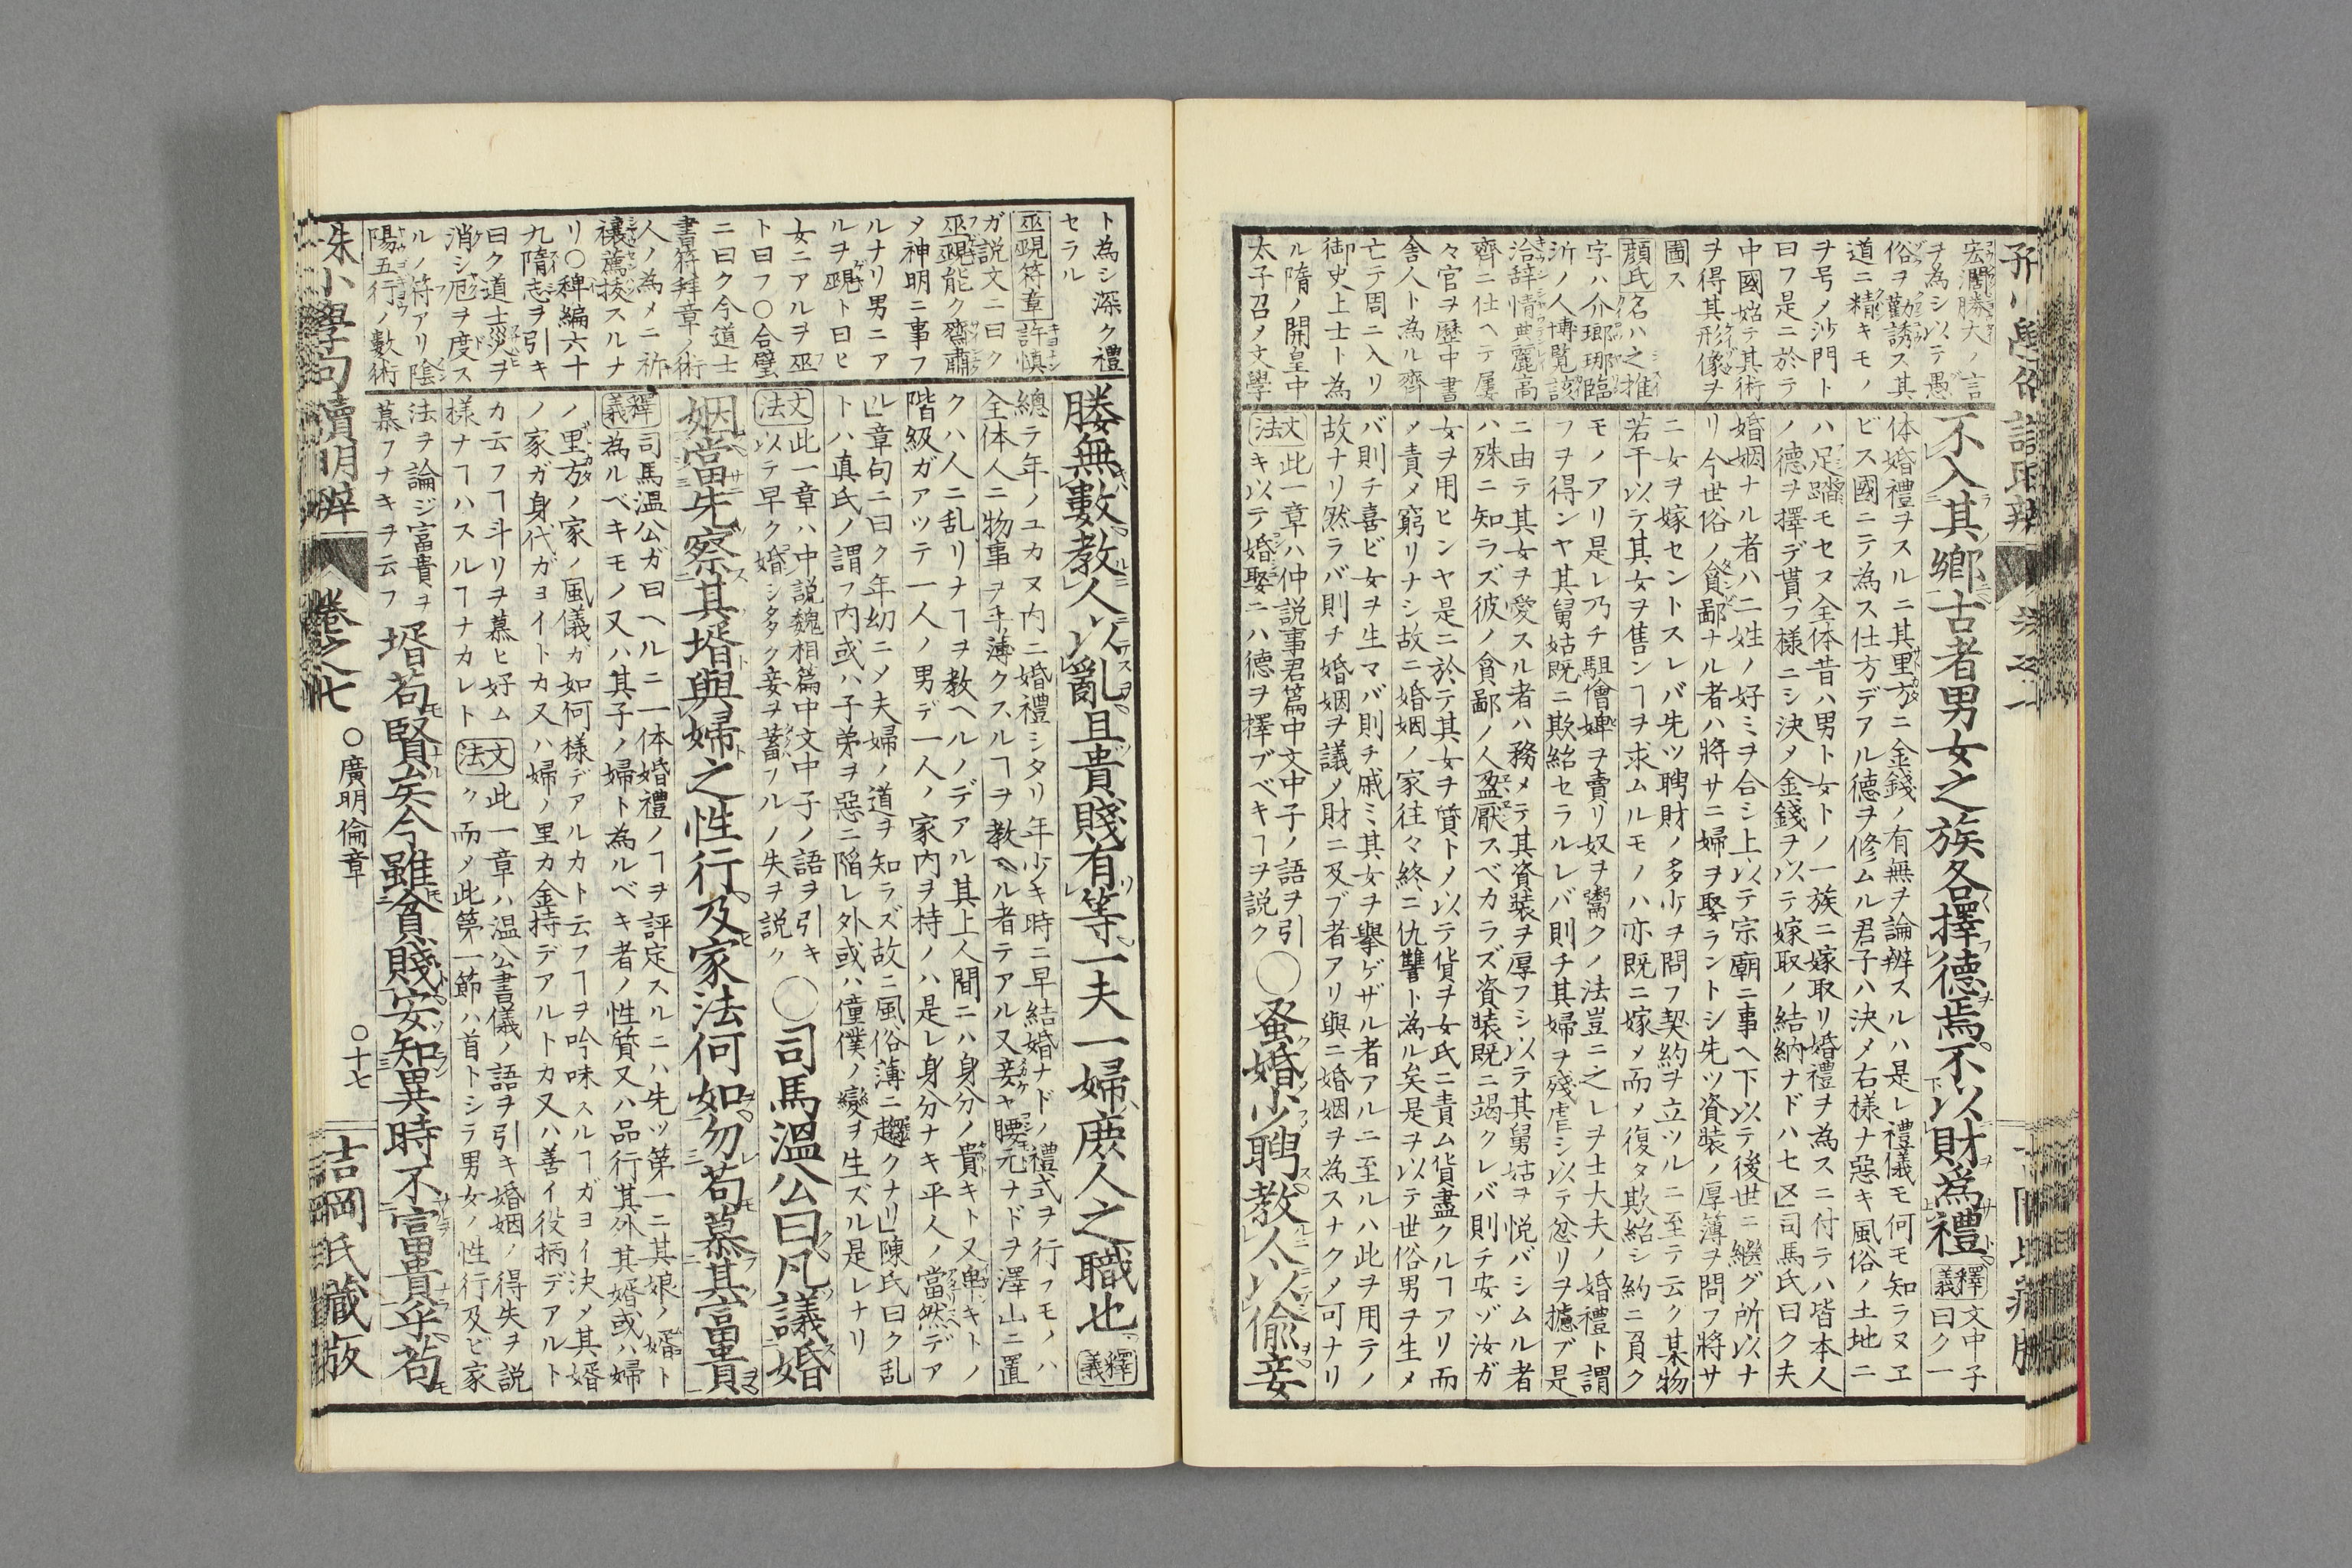 宏闊勝大ノ言
ヲ為シ以テ愚
俗ヲ勸誘ス其
道ニ精キモノ
ヲ号ノ沙門ト
曰フ是ニ於テ
中國始テ其術
ヲ得其形像ヲ
圖ス
顔氏 名ハ之推
字ハ介瑯琊臨
沂ノ人博覧該
洽辞情典麗高
齊ニ仕ヘテ屢
々官ヲ歷中書
舎人ト為ル齊
亡テ周ニ入リ
御史上士ト為
ル隋ノ開皇中
太子召ノ文學
不入其鄉古者男女之族各擇德焉不以財為禮 釋義 文中子曰ク一
体婚禮ヲスルニ其里方ニ金錢ノ有無ヲ論辨スルハ是レ禮儀モ何モ知ラヌヱ
ビス國ニテ為ス仕方デアル德ヲ修ムル君子ハ決メ右樣ナ惡キ風俗ノ土地ニ
ハ足踏モセヌ全体昔ハ男ト女トノ一族ニ嫁取リ婚禮ヲ為スニ付テハ皆本人
ノ德ヲ擇デ貰フ樣ニシ決メ金錢ヲ以テ嫁取ノ結納ナドハセヌ」司馬氏曰ク夫
婚姻ナル者ハ二姓ノ好ミヲ合シ上以テ宗廟ニ事ヘ下以テ後世ニ繼グ所以ナ
リ今世俗ノ貪鄙ナル者ハ將サニ婦ヲ娶ラントシ先ツ資裝ノ厚薄ヲ問フ將サ
ニ女ヲ嫁セントスレバ先ツ聘財ノ多少ヲ問フ契約ヲ立ツルニ至テ云ク某物
若干以テ其女ヲ售ンヿヲ求ムルモノハ亦既ニ嫁メ而メ復タ欺紿シ約ニ負ク
モノアリ是レ乃チ駔儈婢ヲ賣リ奴ヲ鬻クノ法豈ニ之レヲ士大夫ノ婚禮ト謂
フヲ得ンヤ其舅姑既ニ欺紿セラルレバ則チ其婦ヲ殘虐シ以テ忿リヲ攄ブ是
ニ由テ其女ヲ愛スル者ハ務メテ其資裝ヲ厚フシ以テ其舅姑ヲ悦バシムル者
ハ殊ニ知ラズ彼ノ貪鄙ノ人盈厭スベカラズ資裝既ニ竭クレバ則チ安ゾ汝ガ
女ヲ用ヒンヤ是ニ於テ其女ヲ質トメ以テ貨ヲ女氏ニ責ム貨盡クルヿアリ而
メ責メ窮リナシ故ニ婚姻ノ家往々終ニ仇讐ト為ル矣是ヲ以テ世俗男ヲ生メ
バ則チ喜ビ女ヲ生マバ則チ戚ミ其女ヲ擧ゲザル者アルニ至ルハ此ヲ用テノ
故ナリ然ラバ則チ婚姻ヲ議ノ財ニ及ブ者アリ與ニ婚姻ヲ為スナクメ可ナリ
文法 此一章ハ仲説事君篇中文中子ノ語ヲ引
キ以テ婚娶ニハ德ヲ擇ブベキヿヲ説ク
○蚤婚少聘教人以偸妾
ト為シ深ク禮
セラル
巫覡符章 許慎
ガ説文ニ曰ク
巫覡能ク齋肅
メ神明ニ事フ
ルナリ男ニア
ルヲ覡ト曰ヒ
女ニアルヲ巫
ト曰フ○合璧
ニ曰ク今道士
書符拜章ノ術
人ノ為メニ祈
禳薦拔スルナ
リ○稗編六十
九隋志ヲ引キ
曰ク道士災ヲ
消シ厄ヲ度ス
ルノ符アリ陰
陽五行ノ數術
媵無數教人以亂且貴賤有等一夫一婦庶人之職也 釋義
總テ年ノユカヌ内ニ婚禮シタリ年少キ時ニ早結婚ナドノ禮式ヲ行フモノハ
全体人ニ物事ヲ手薄クスルヿヲ教ヘル者テアル又妾ヤ腰元ナドヲ澤山ニ置
クハ人ニ乱リナヿヲ教ヘルノデアル其上人間ニハ身分ノ貴キト又卑キトノ
階級ガアツテ一人ノ男デ一人ノ家内ヲ持ノハ是レ身分ナキ平人ノ當然デア
ル」章句ニ曰ク年幼ニメ夫婦ノ道ヲ知ラズ故ニ風俗薄ニ趨クナリ」陳氏曰ク乱
トハ真氏ノ謂フ内或ハ子弟ヲ惡ニ陷レ外或ハ僮僕ノ變ヲ生ズル是レナリ
文法 此一章ハ中説魏相篇中文中子ノ語ヲ引キ
以テ早ク婚シ多ク妾ヲ蓄フルノ失ヲ説ク
○司馬溫公曰凡議婚
姻當先察其壻與婦之性行及家法何如勿苟慕其富貴
釋義 司馬温公ガ曰ヘルニ一体婚禮ノヿヲ評定スルニハ先ツ第一ニ其娘ノ婿ト
為ルベキモノ又ハ其子ノ婦ト為ルベキ者ノ性質又ハ品行其外其婿或ハ婦
ノ里方ノ家ノ風儀ガ如何樣デアルカト云フヿヲ吟味スルヿガヨイ決メ其婿
ノ家ガ身代ガヨイトカ又ハ婦ノ里カ金持デアルトカ又ハ善イ役柄デアルト
カ云フヿ斗リヲ慕ヒ好ム
樣ナヿハスルヿナカレト
文法 此一章ハ温公書儀ノ語ヲ引キ婚姻ノ得失ヲ説
ク而メ此第一節ハ首トシラ男女ノ性行及ビ家
法ヲ論ジ富貴ヲ
慕フナキヲ云フ
壻苟賢矣今雖貧賤安知異時不富貴乎苟
朱小學句讀明辨
卷之七
○廣明倫章
○十七
吉岡氏藏版